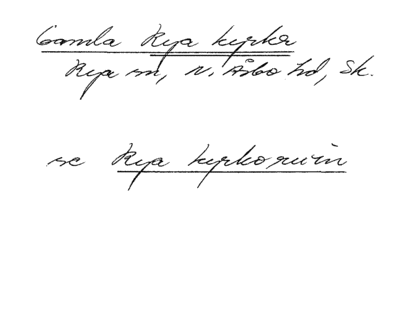 Gamla Rya kyrka
Rya sn, N. Åsbo hd, Sk.
se Rya kyrkoruin